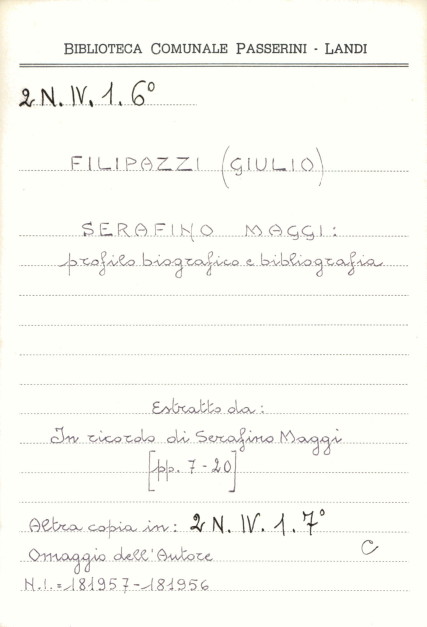 BIBLIOTECA COMUNALE PASSERINI - LANDI
2 N. IV. 1. 6°
FILIPAZZI (GIULIO)
SERAFINO MAGGI:
profilo biografico e bibliografia
Estratto da:
In ricordo di Serafino Maggi
[pp. 7-20]
Altra copia in: 2 N. IV. 1. 7°
Omaggio dell'Autore C
N.I. = 181957-181956